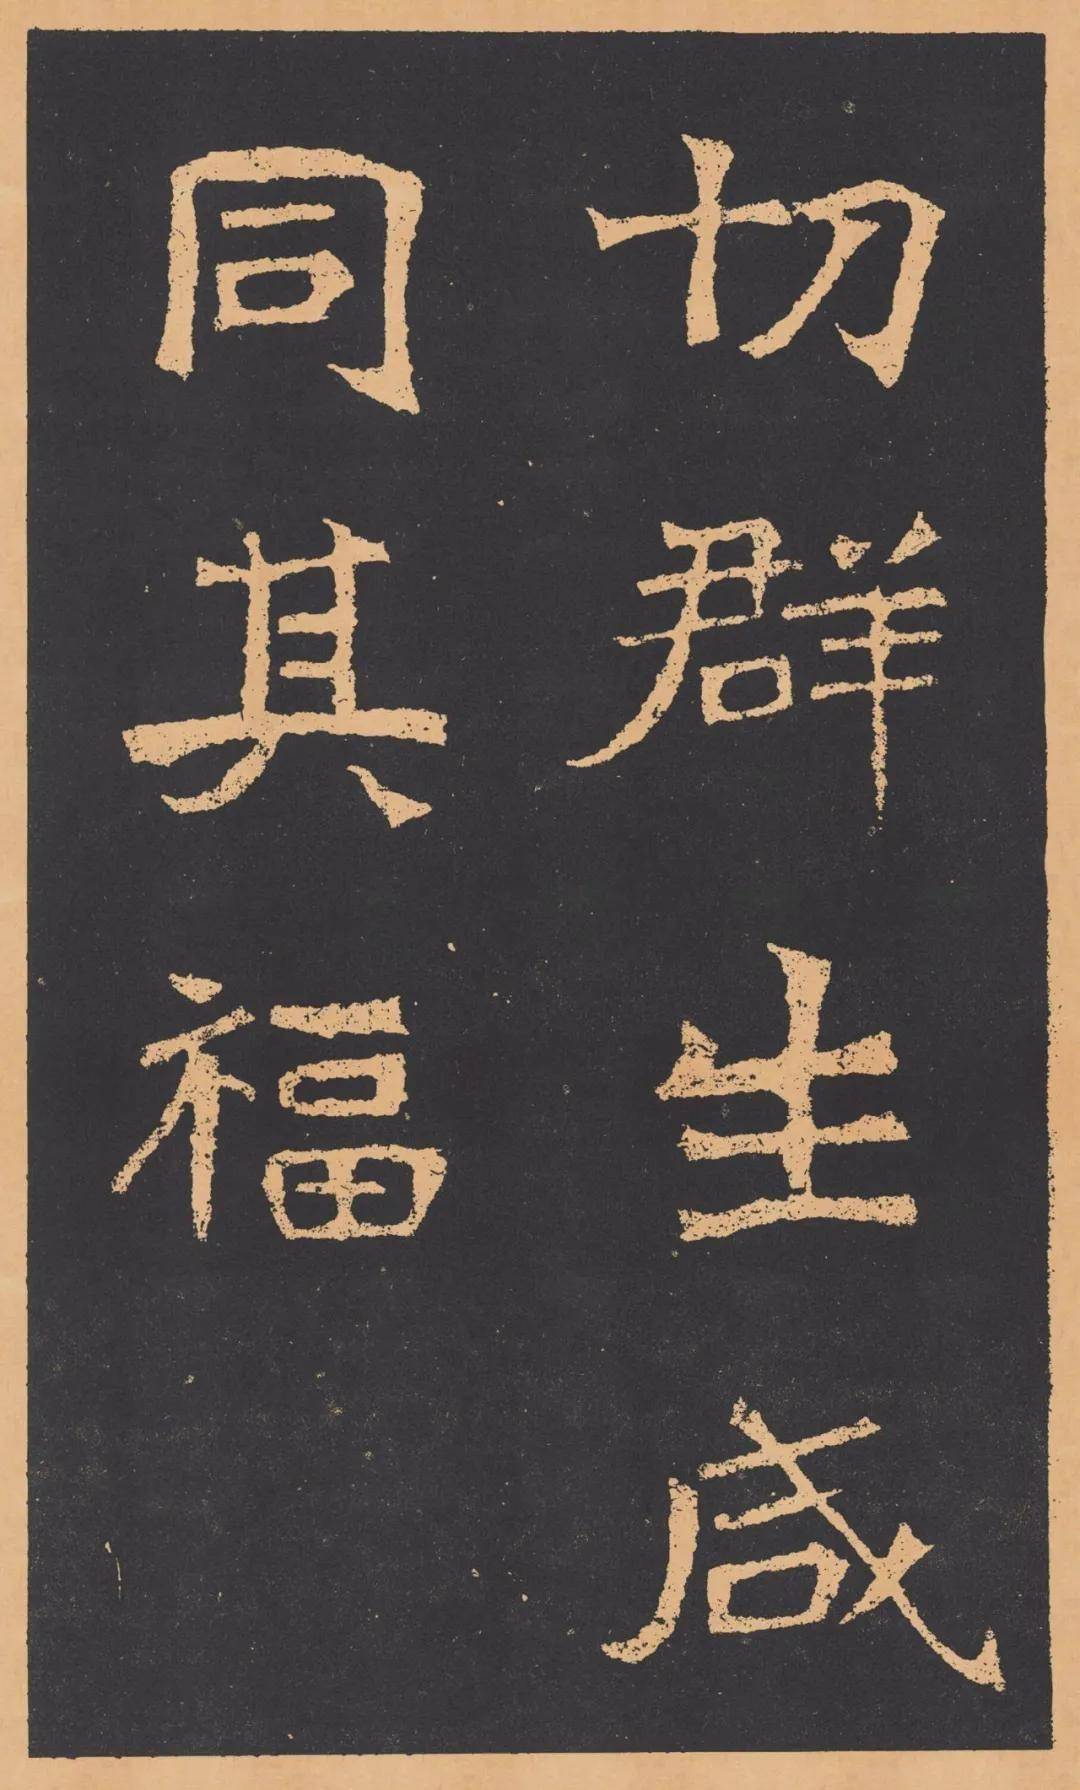 切群生咸
同其福